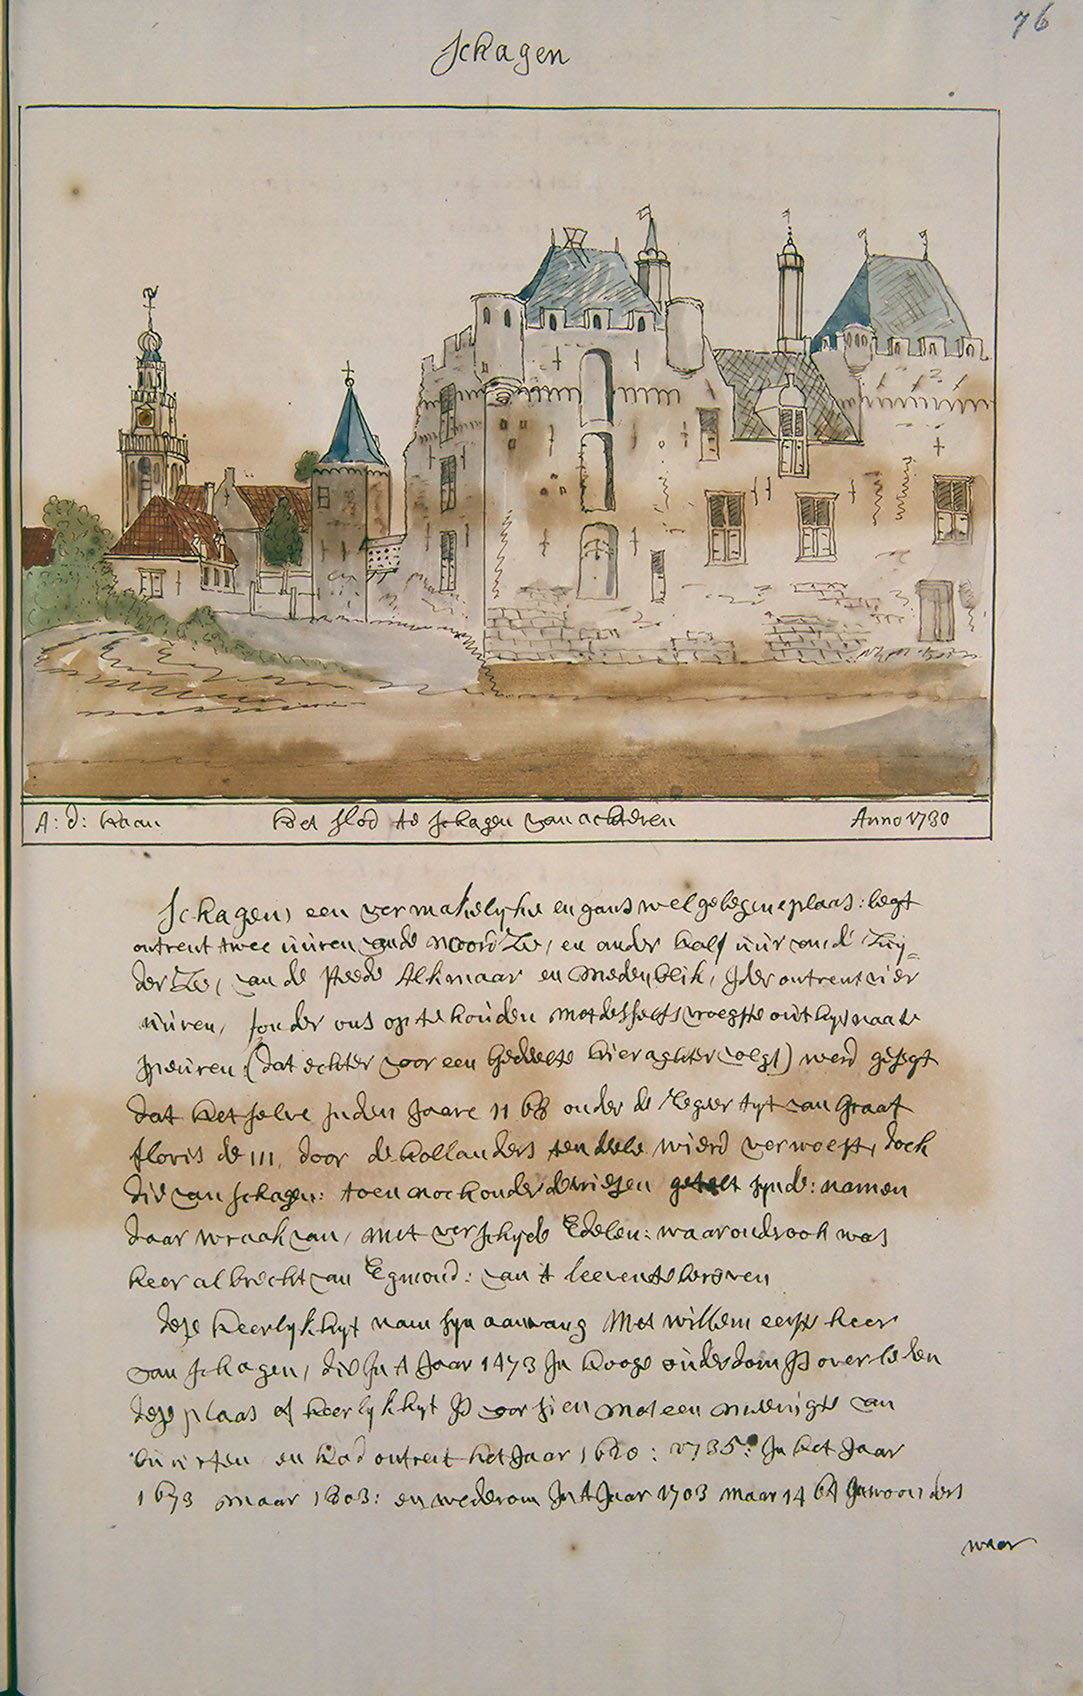 76
Schagen
A: d: Haan Het slod te Schagen van achteren Anno 1730
Schagen, een vermakelyke en gans wel gelegene plaas: legt
ontrent twee uuren van de Noord Zee, en ander half uur van d' Zuy=
der Zee, van de steede Alkmaar en Medenblik, Jder ontrent vier
uuren, sonder ons op te houden met desselfs vroegste outhyt naa te
speuren (dat echter voor een gedeelte hier aghter volgt) werd gesegt
dat het selve Jn den Jaare 1168 onder de Regeer tyt van Graaf
floris de III, door de hollanders ten deele wierd verwoest, doch
die van schagen: toen noch onder de vriesen getelt synde: namen
daar wraak van, met verschyde Edelen: waar onder ook was
heer albrecht van Egmond: van 't leeven te beroven
deze heerlykhyt nam syn aanvang Met willem eerste heer
van schagen, die Jn 't Jaar 1473 Jn hooge ouderdom Js overleden
deze plaas of heerlykhyt Js voorsien met een menigte van
buurten en had ontrent het Jaar 1620: 1735: Jn het Jaar
1673 maar 1803: en wederom Jn 't Jaar 1703 maar 1464 Jnwoonders
waar